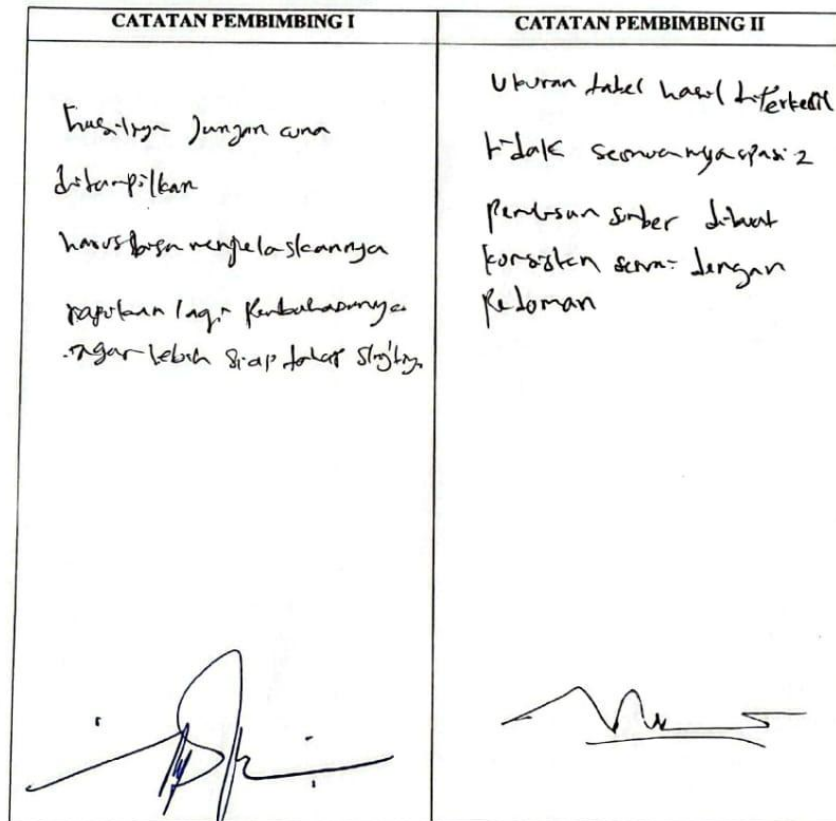 CATATAN PEMBIMBING I
hasilnya Jangan cuma
ditampilkan
harus bisa menjelaskannya
rapikan lagi Pembahasannya
agar lebih siap
CATATAN PEMBIMBING II
Ukuran tabel hasil diperkecil
tidak semuanya spasi 2
Penulisan sumber dibuat
konsisten sesuai dengan
Pedoman